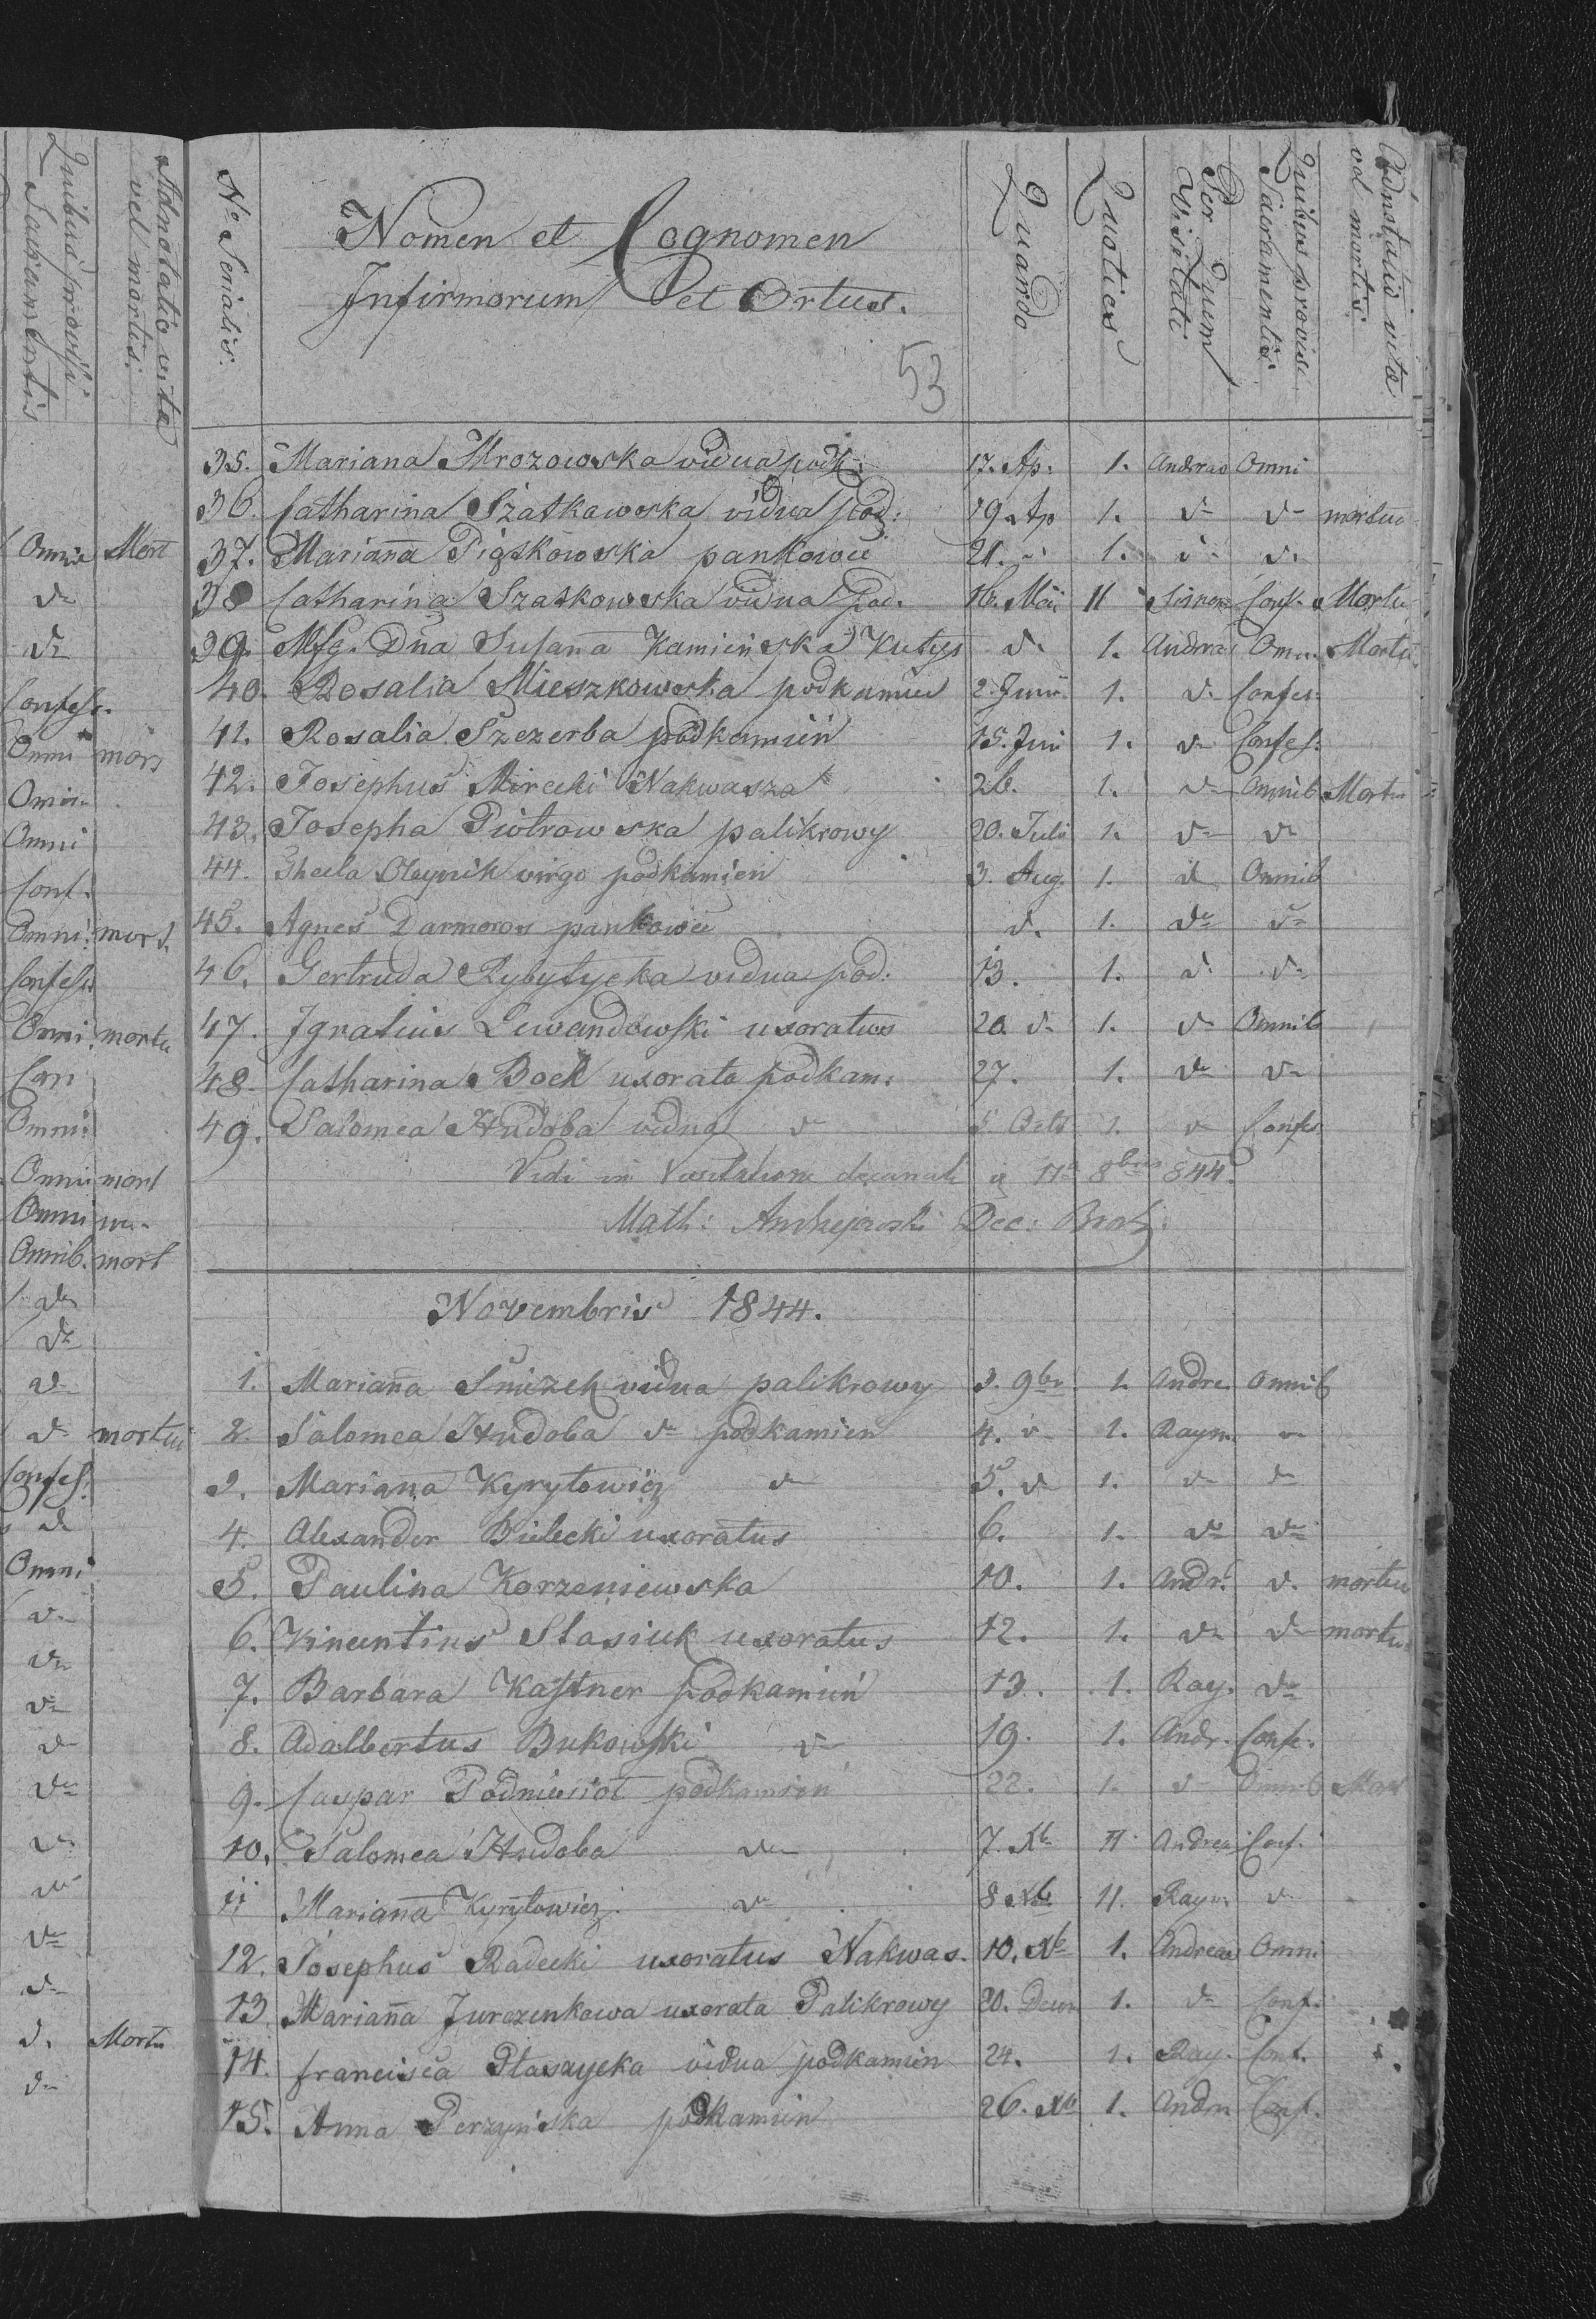 Quibus provisi Sacramentis
Adnotatio vitæ vel mortis.
Omni Mort
d-
d-
Confess.
Omni mors
Omni
Omni
Conf.
Omni mort.
Confess.
Omni. mortu
Con
Omni.
Omni mort
Omni
Omnib. mort
d-
d-
d-
d- mortui
Confess.
d-
Omni
d-
d-
d-
d-
d-
d-
d-
d-
d-
d. Mortu
d-
Nº Serialis.
Nomen et Cognomen
Infirmorum et Ortus.
53
Quando
Quoties
Per Quem Visitati
Quibus provisi Sacramentis
Adnotatio vitæ vel mortis
35. Mariana Mrozowska vidua podk. 17. Ap. 1. Andreas Omni
36. Catharina Szatkawska vidua pod: 19. Ap 1. d- d- mortua
37. Mariana Piątkowska pankowce 21. d- 1. d- d.
38 Catharina Szatkowska vidua pod. 16. Maii 11 Conf. Mortu
39. Mfg. Dna Susana Kamieńska Kutys d. 1. Andrea Omn. Mortu.
40. Rosalia Mieszkowska podkamien 2. Junii 1. d- Confes.
41. Rosalia Szczerba podkamień 15. Juni 1. d- Confes.
42. Josephus Mirecki Nakwasza 26. 1. d- Omnib Mortu
43. Josepha Piotrowska palikrowy 20. Juli 1. d- d-
44. Oleynik virgo podkamien 3. Aug. 1. d Omnib
45. Agnes Darmoros pankowce d. 1. d- d-
46. Gertruda Rybytycka vidua pod: 13. 1. d. d-
47. Ignatius Lewandowski uxoratus 20. d- 1. d- Omnib
48. Catharina Bock uxorata podkam: 27. 1. d- d-
49. Salomea Hudoba vidua d- 5 Octb 1. d- Confes.
Vidi in Visitatione decanali d 11a 8bris 844.
Math: Andrejowski Dec: Brod:
Novembris 1844.
1. Mariana Śnieżek vidua palikrowy 3. 9br. 1. Andre. Omnib
2. Salomea Hudoba d- podkamien 4. d- 1. Raym. d-
3. Mariana Kyrytowicz d- 5. d- 1. d- d-
4. Alexander Bielecki uxoratus 6. 1. d- d-
5. Paulina Korzeniewska 10. 1. Andr. d. mortua
6. Vincentius Stasiuk uxoratus 12. 1. d- d- mortu.
7. Barbara Kastner podkamień 13. 1. Ray. d-
8. Adalbertus Bukowski d- 19. 1. Andr. Confe.
9. Caspar Podniesiot podkamień 22. 1. d- Omnib Mort
10. Salomea Hudoba d- 7. Xb- 11 Andrea Conf.
11 Mariana Kyrytowicz d- 8 Xb. 11. Raym. d-
12. Josephus Radecki uxoratus Nakwas. 10. Xb- 1. Andreas Omni
13 Mariana Jurczenkowa uxorata Palikrowy 20. Decem 1. d- Conf.
14. francisca Ptaszycka vidua podkamien 24. 1. Ray. Conf.
15. Anna Perzyńska podkamien 26. Xb 1. Andre Conf.